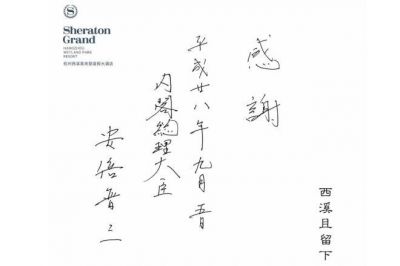 Sheraton
Grand
HANGZHOU
WETLAND PARK
RESORT
感謝
平成廿八年九月五日
内閣総理大臣
安倍晋三
西溪且留下